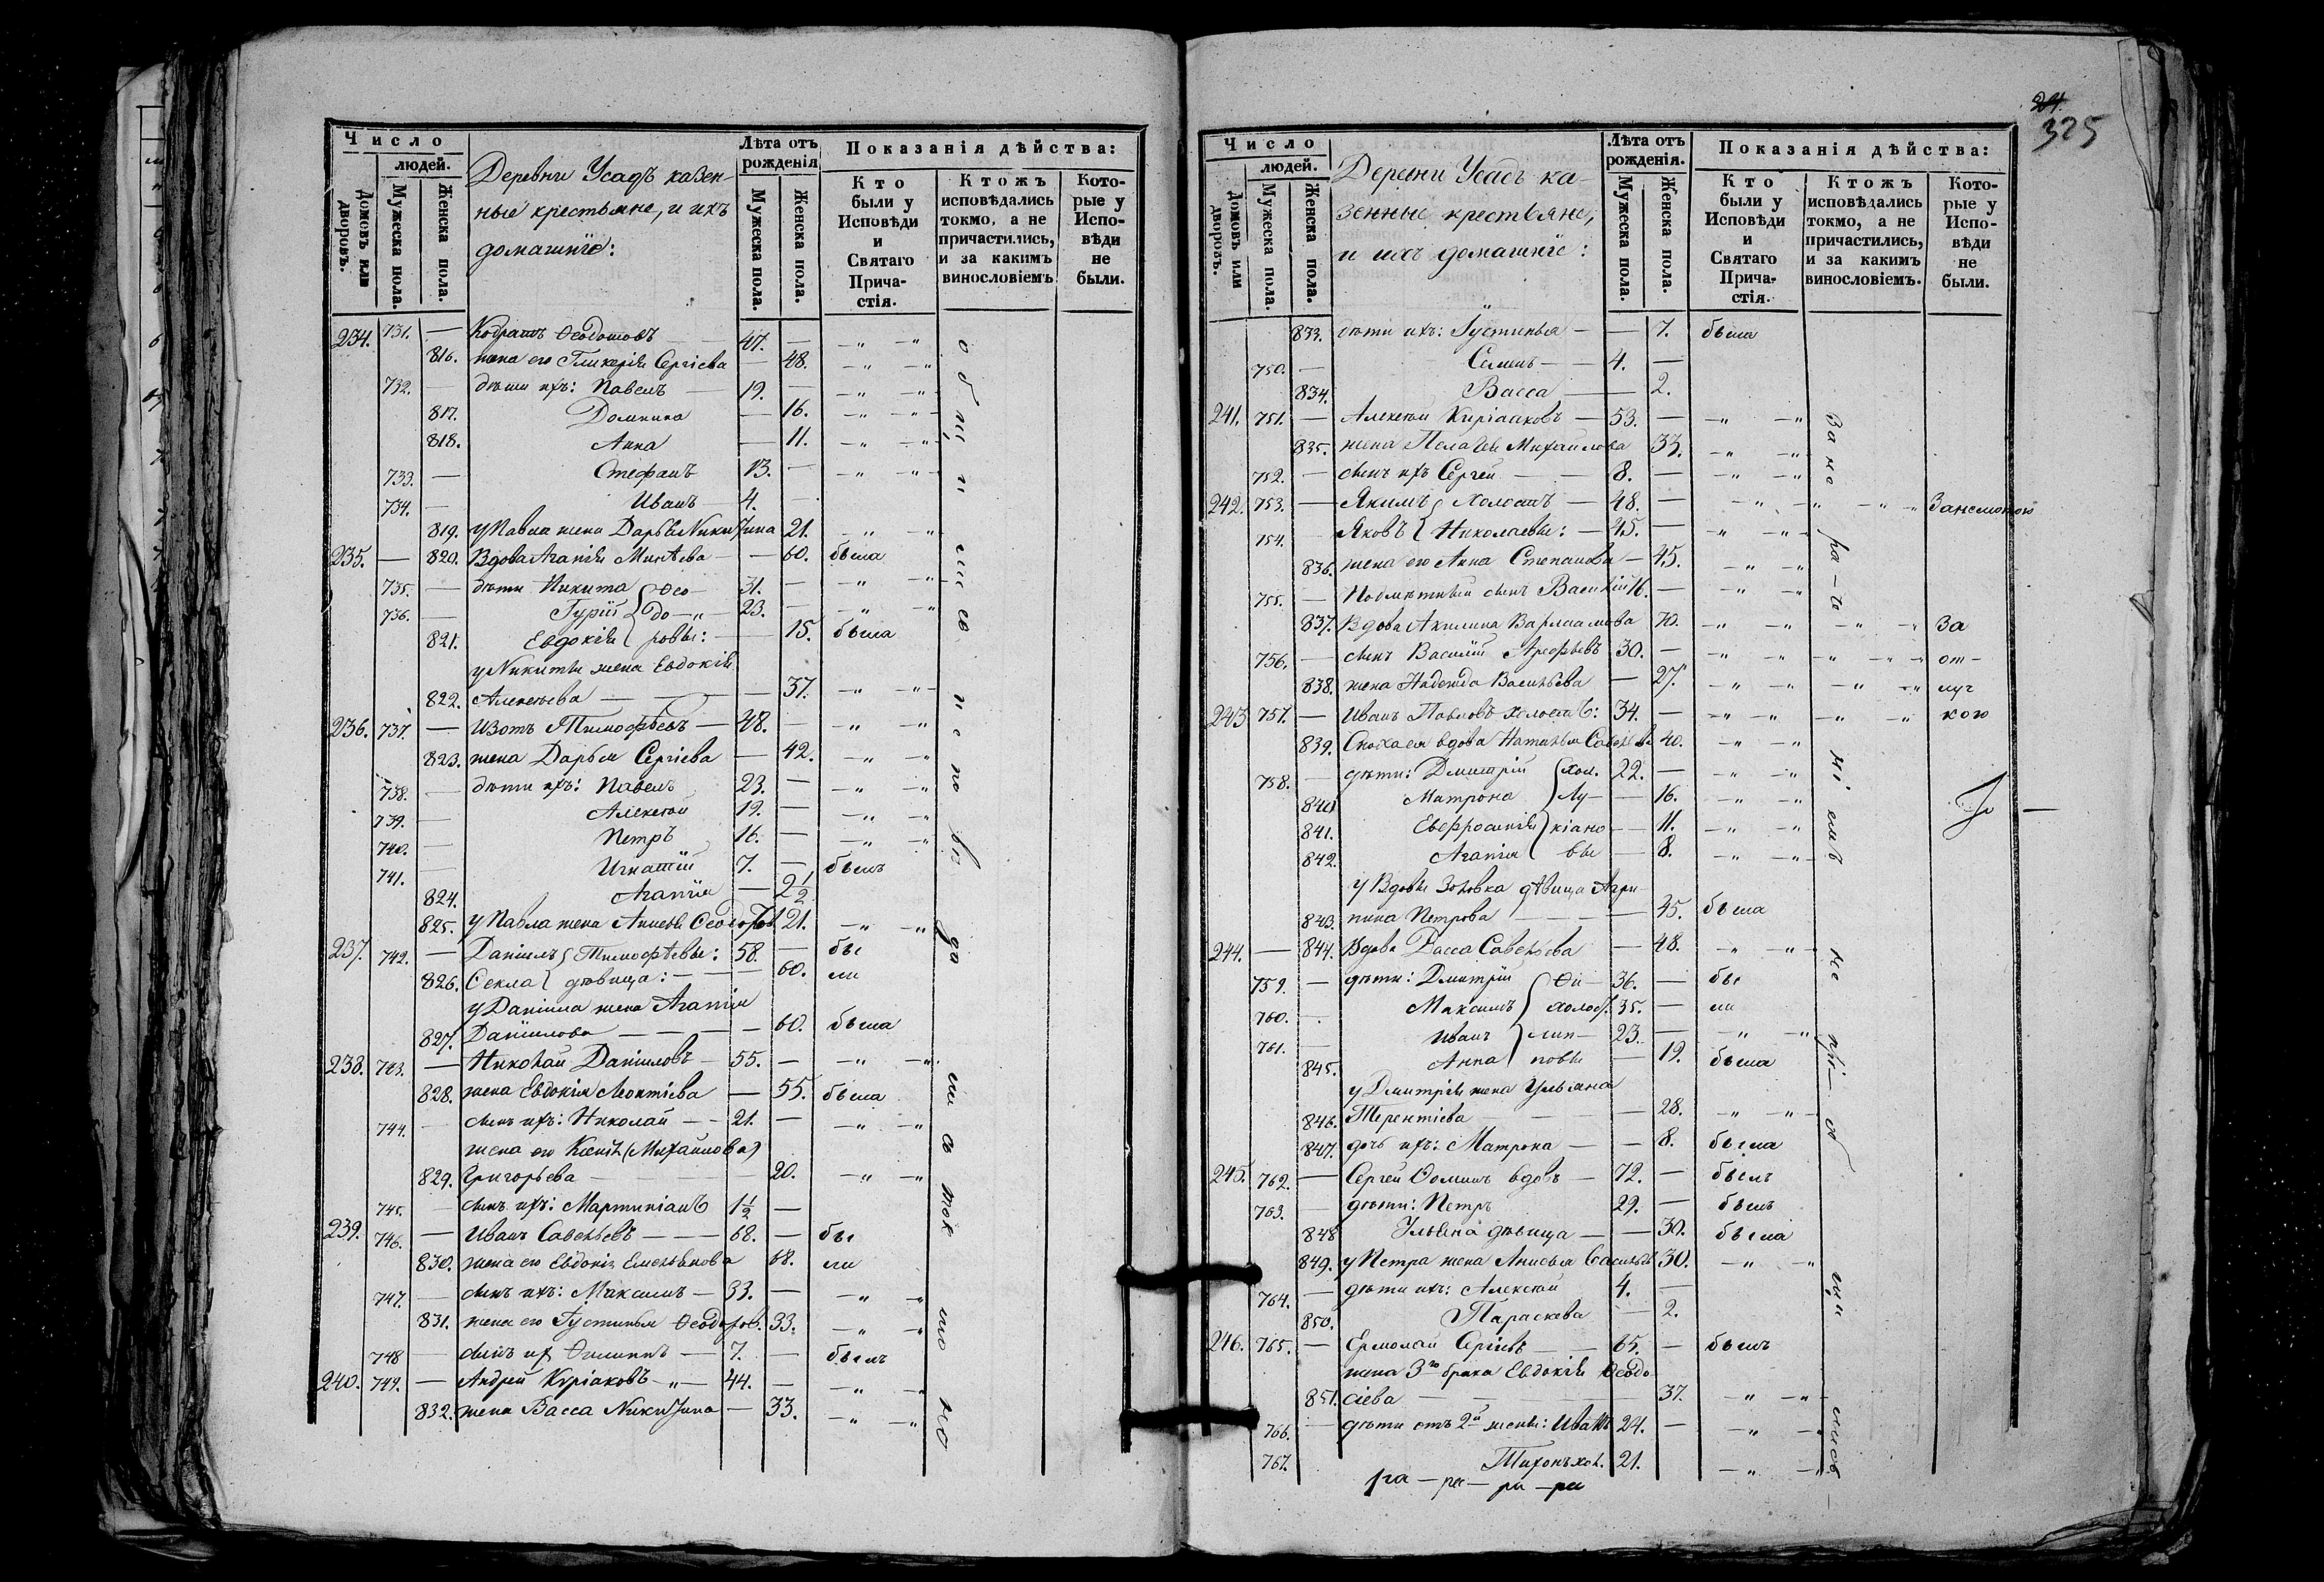 Число
людей.
Домовъ или дворовъ.
Мужеска пола.
Женска пола.
Деревни Усадъ казен-
ные крестьяне, и ихъ
домашніе:
Лѣта отъ рожденія
Мужеска пола.
Женска пола.
Показанія дѣйства:
Кто были у Исповѣди и Святаго Прича-стія.
Ктожъ исповѣдались токмо, а не причастились, и за какимъ винословіемъ
Кото-рые у Испо-вѣди не были.
234. 731. — Кодратъ Ѳеодотовъ 47. — -„- -„-
816. жена его Гликерія Сергіева — 48. -„- -„-
732. — дѣти ихъ: Павелъ — 19. — -„- -„-
817. Домника — 16. -„- -„-
818. Анна — 11. -„- -„-
733. — Стефанъ 13. — -„- -„-
734. — Иванъ 4. —
819. у Павла жена Дарья Никитина 21. -„- -„-
235. — 820. Вдова Агапія Минѣева — — 60. была
735. — дѣти Никита Ѳео- 31. — -„- -„-
736. — Гурій до-„- 23. — -„- -„-
821. Евдокія ровы: — 15. была
у Никиты жена Евдокія
822. Алексѣева — — — 37. -„- -„-
236. 737. — Изотъ Тимофѣевъ — 48. — -„- -„-
823. жена Дарья Сергіева — 42. -„- -„-
738. — дѣти ихъ: Павелъ 23. — -„- -„-
739. — Алексѣй 19. — -„- -„-
740. — Петръ 16. — -„- -„-
741. — Игнатій 7. — былъ
824. Агапія — 2½
825. у Павла жена Ѳеодоров. 21. -„- -„-
237. 742. — Даніилъ Тимофѣевы: 58. — бы
826. Секла дѣвица: — — 60. ли
у Даніила жена Агапія
827. Даніилова — — — 60. была
238. 743. — Николай Даніиловъ 55. — -„- -„-
828. жена Евдокія Леонтіева — 55. была
744. — сынъ ихъ: Николай — — 21. — -„- -„-
жена его Ксенія (Михаилова)
829. Григорьева — — 20. -„- -„-
745. — сынъ ихъ: Мартиніанъ 1½ —
239. 746. — Иванъ Савельевъ — — — 68. — бы
830. жена его Евдокія Емельянова 68. ли
747. — сынъ ихъ: Максимъ — 33. — -„- -„-
831. жена его Густинья Ѳеодоров. 33. -„- -„-
748 — сынъ их Филиппъ — 7. — былъ
240. 749. — Андрей Киріаковъ -„- 44. — -„- -„-
832. жена Васса Никитина — 33. -„- -„-
24.
325
Число
людей.
Домовъ или дворовъ.
Мужеска пола.
Женска пола.
Деревни Усадъ ка-
зенные крестьяне,
и ихъ домашніе:
Лѣта отъ рожденія.
Мужеска пола.
Женска пола.
Показанія дѣйства:
Кто были у Исповѣди и Святаго Прича-стія.
Ктожъ исповѣдались токмо, а не причастились, и за какимъ винословіемъ.
Кото-рые у Испо-вѣди не были.
833. дѣти ихъ: Густинья — — 7. была
750. — Семенъ — — 4. —
834. Васса — — 2.
241. 751. — Алексѣй Киріаковъ — 53. — -„- -„-
835. жена Пелагія Михайлова 33. -„- -„-
752. — сынъ ихъ Сергей — — 8. — -„- -„-
242. 753. — Якимъ холостъ — 48. — -„- -„- -„-
754. Яковъ Николаевы: — 45. — -„- -„-
836. жена его Анна Степанова — 45. -„- -„-
755. — сынъ Василій 16. — -„- -„-
837. Вдова Акилина Варлаамова 70. -„- -„- -„- За
756. — сынъ Василій Арефьевъ 30. — -„- -„- -„- от-
838. жена Надежда Васильева — 27. -„- -„- -„- луч
243 757. — Иванъ Павловъ холостъ: 34. — -„- -„- -„- кою
839. Сноха ея вдова Наталья Савельева 40. -„- -„-
758. — дѣти: Дмитрій хол. 22. — -„- -„-
840. Матрона Лу- — 16. -„- -„-
841. Евфросинія кіано — 11. -„- -„-
842. Агапія вы — 8. -„- -„-
у Вдовы Золовка дѣвица Агри-
843. пина Петрова — — — 45. была
244. — 844. Вдова Васса Савельева — 48. -„- -„-
759. — дѣти: Дмитрій Фи- 36. — бы
760. — Максимъ холост. 35. — ли
761. — Иванъ лип- 23. — -„- -„-
845. Анна повы — 19. была
у Дмитрія жена Ульяна
846. Терентіева — — — 28. -„- -„-
847. дочь ихъ: Матрона — — 8. была
245. 762. — Сергей Ѳоминъ вдовъ — 72. — былъ
763. — дѣти: Петръ 29. — былъ
848 Ульяна дѣвица — — 30. была
849. у Петра жена Анисья Васильев. 30. -„- -„-
764. — дѣти ихъ: Алексѣй 4. —
850. Параскева — 2.
246. 765. — Ермолай Сергіевъ — — 65. — былъ
жена 3го брака Евдокія Ѳеодо-
851. сіева — — — — 37. -„- -„-
766. — дѣти отъ 2й жены: Иванъ 24. — -„- -„-
767. Тихонъ хол. 21. -„- -„-